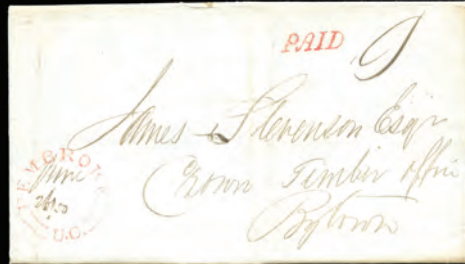 PAID 9
James Stevenson Esqr
Crown Timber Office
Bytown
PEMBROKE
June
U.C.